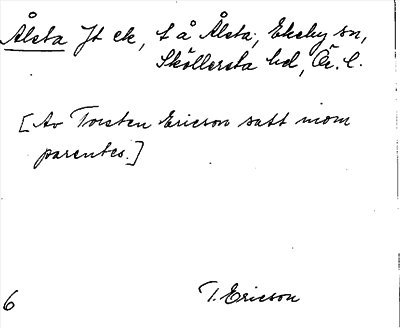 Ålsta Jt ek, t å Ålsta, Ekeby sn,
Sköllersta hd, Ör. l.
[Av Torsten Ericson satt inom
parentes.]
T. Ericson
6